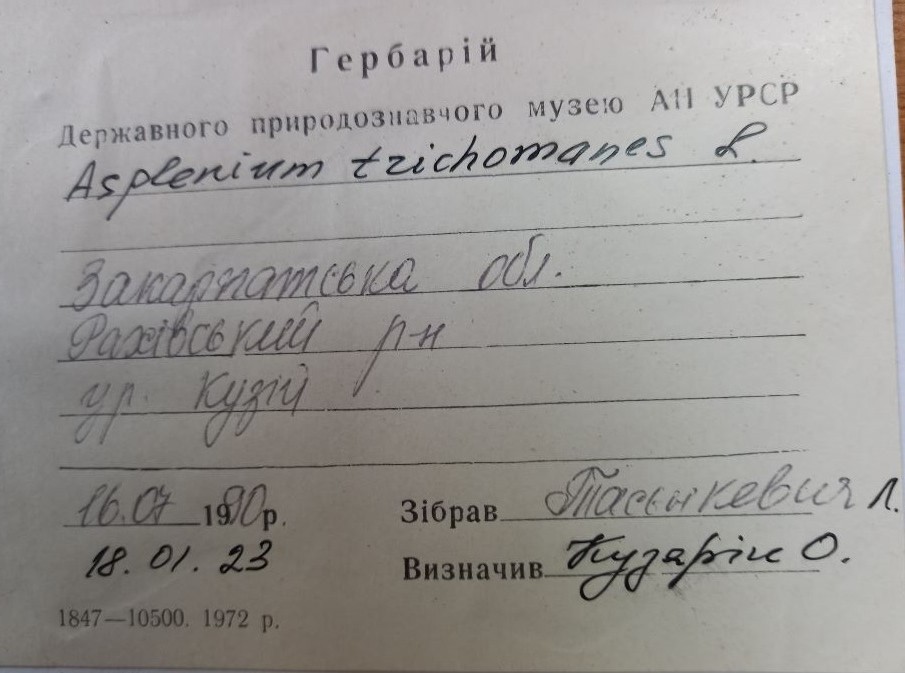 Гербарій
Державного природознавчого музею АН УРСР
Asplenium trichomanes L.
Закарпатська обл.
Рахівський р-н
ур. Кузій
16.07 1990р. Зібрав Тасєнкевич Л.
18.01.23 Визначив Кузярін О.
1847—10500. 1972 р.